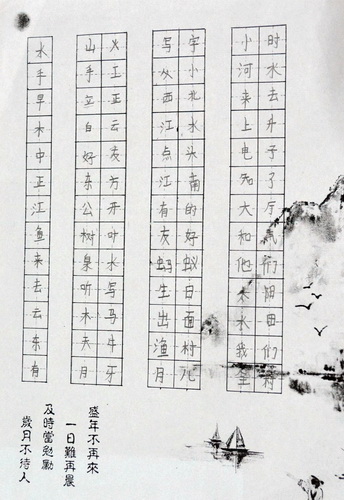 时水去升子了厅们阳田们村
小河来上电知大和他太水我全
字小北水头南的好蚁白面村儿
写从西江点江有友蚂生出渔月
火工正云友方开叶水写马牛牙
山手立白好东公树泉听木夫月
水手早木中正江鱼来去云东有
盛年不再來
一日難再晨
及時當勉勵
歲月不待人